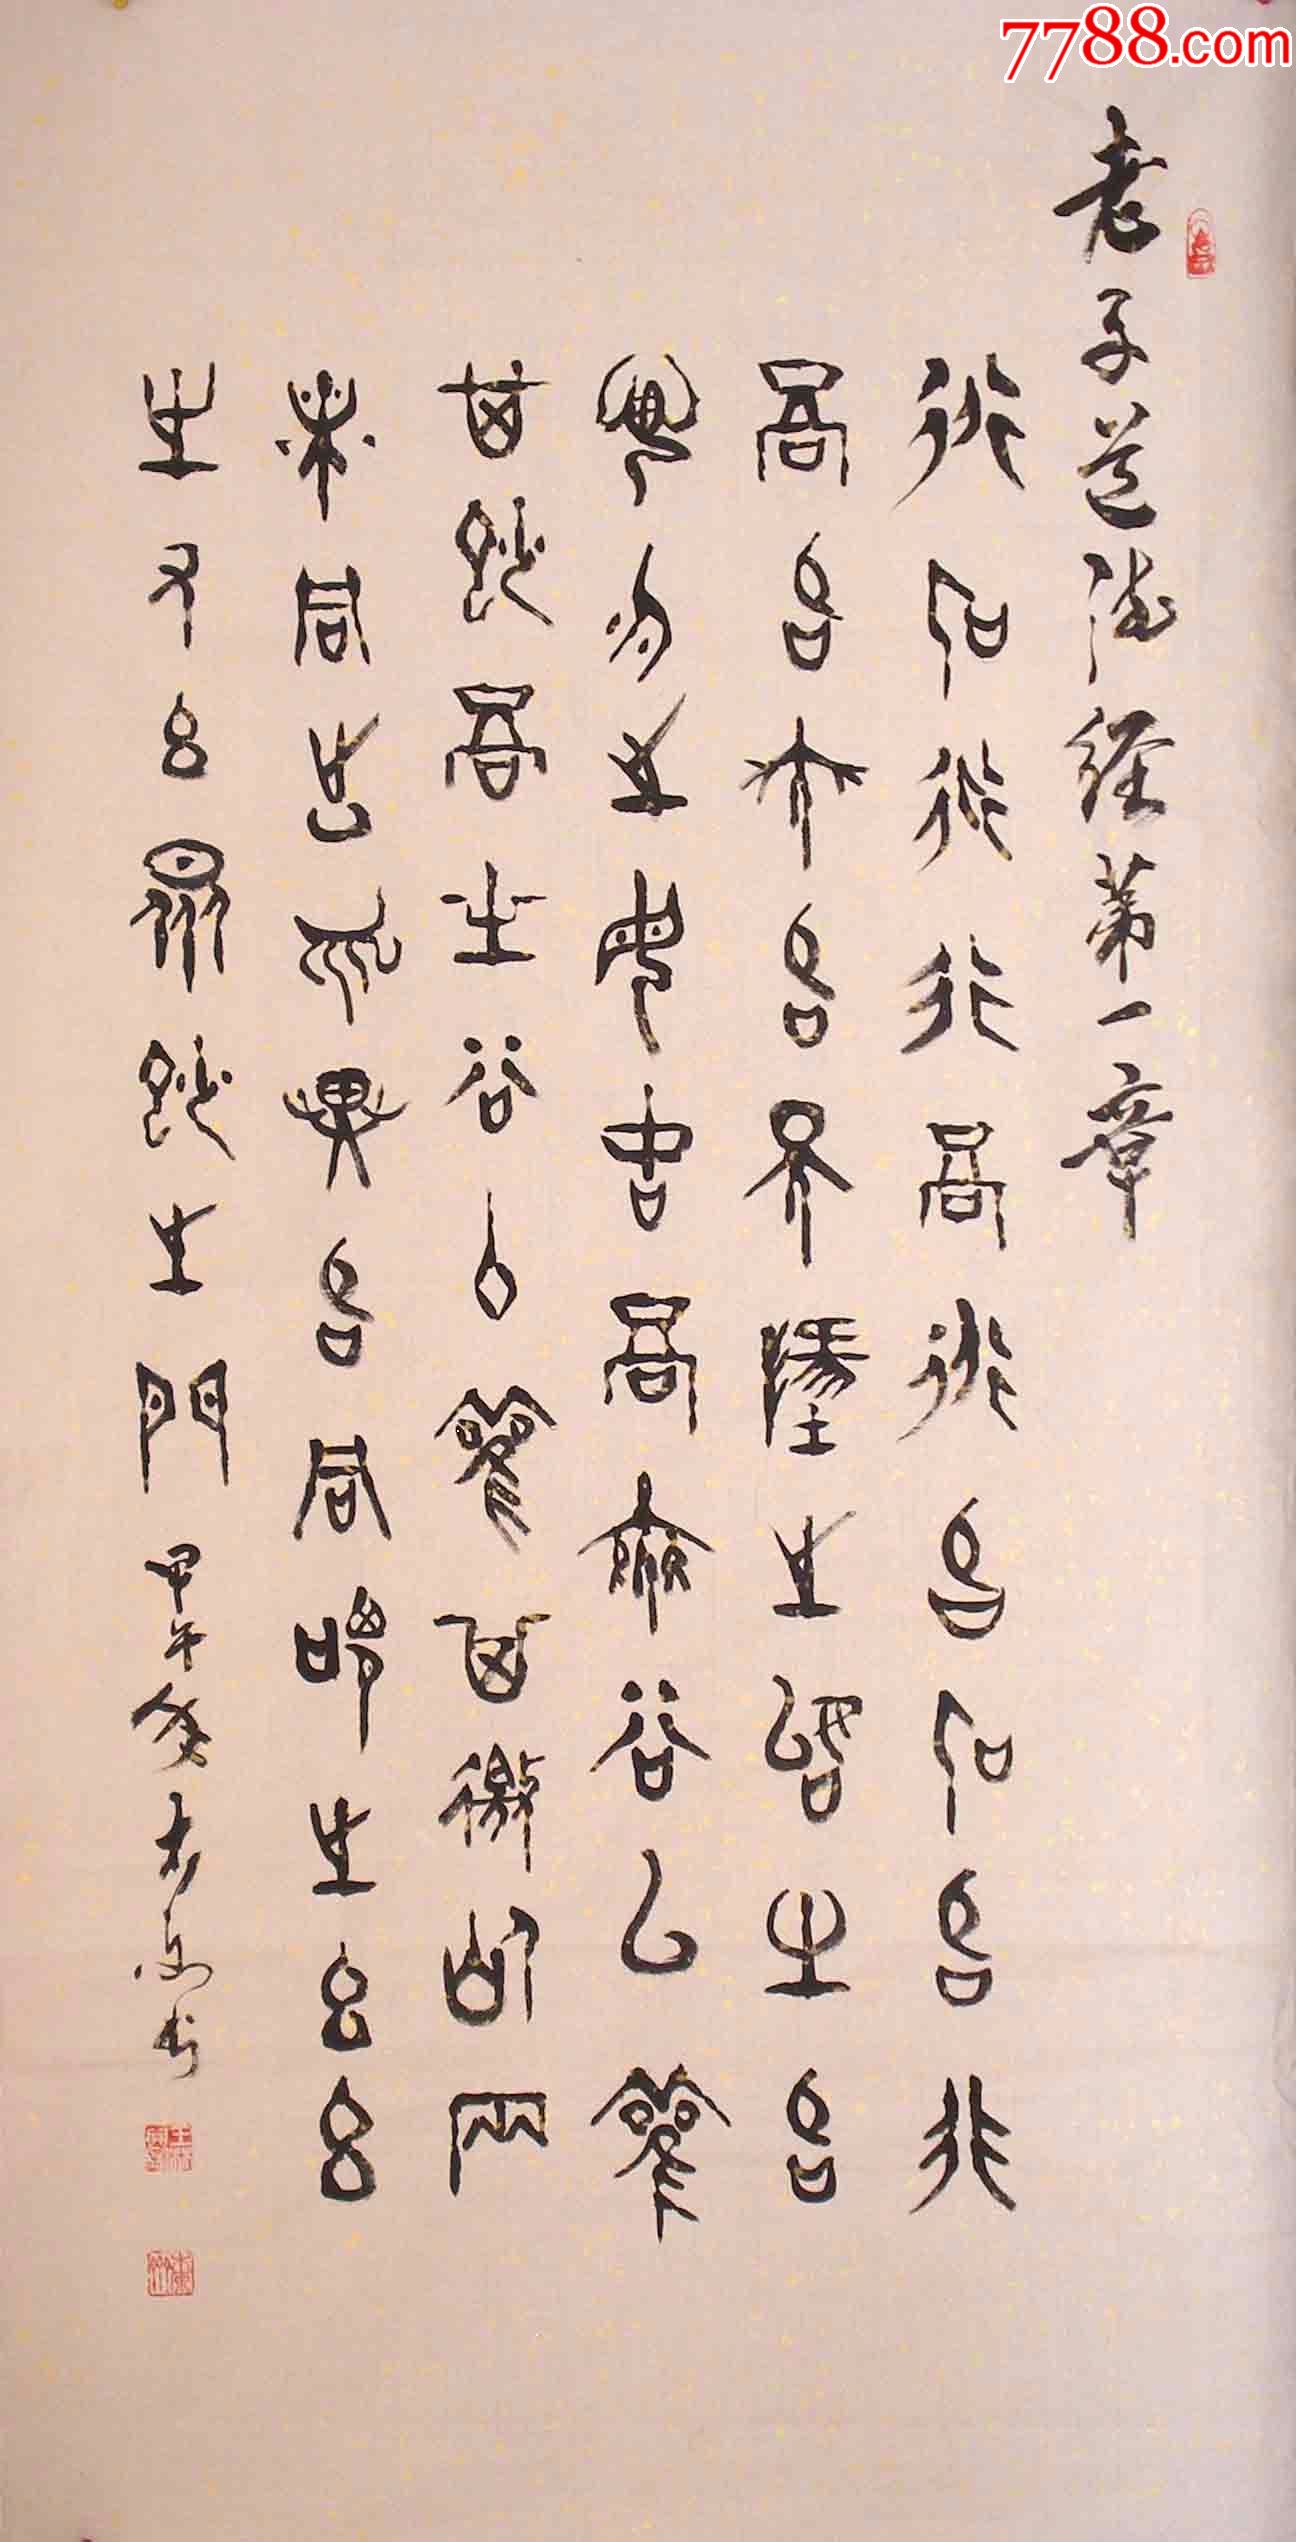 老子道德经第一章
道可道非常道名可名非
常名無名天地之始有名
萬物之母故常無欲以觀
其妙常有欲以觀其徼此兩
者同出而異名同謂之玄玄
之又玄眾妙之門 甲午秋 书
7788.com